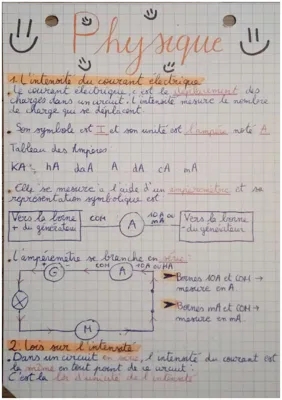 Physique
1. L'intensité du courant électrique
• Le courant électrique, c'est le déplacement des
charges dans un circuit. L'intensité mesure le nombre
de charge qui se déplacent.
• Son symbole est I et son unité est l'ampère noté A.
Tableau des Ampères
KA hA daA A dA cA mA
• Elle se mesure à l'aide d'un ampèremètre et sa
représentation symbolique est :
Vers la borne
+ du générateur
COM
A
10A ou
mA
Vers la borne
- du générateur
• L'ampèremètre se branche en série
G
COM
A
10A ou MA
Bornes 10A et COM →
mesure en A.
Bornes mA et COM →
mesure en mA.
M
2. Lois sur l'intensité
• Dans un circuit en série, l'intensité du courant est
la même en tout point de ce circuit.
C'est la loi d'unicité de l'intensité